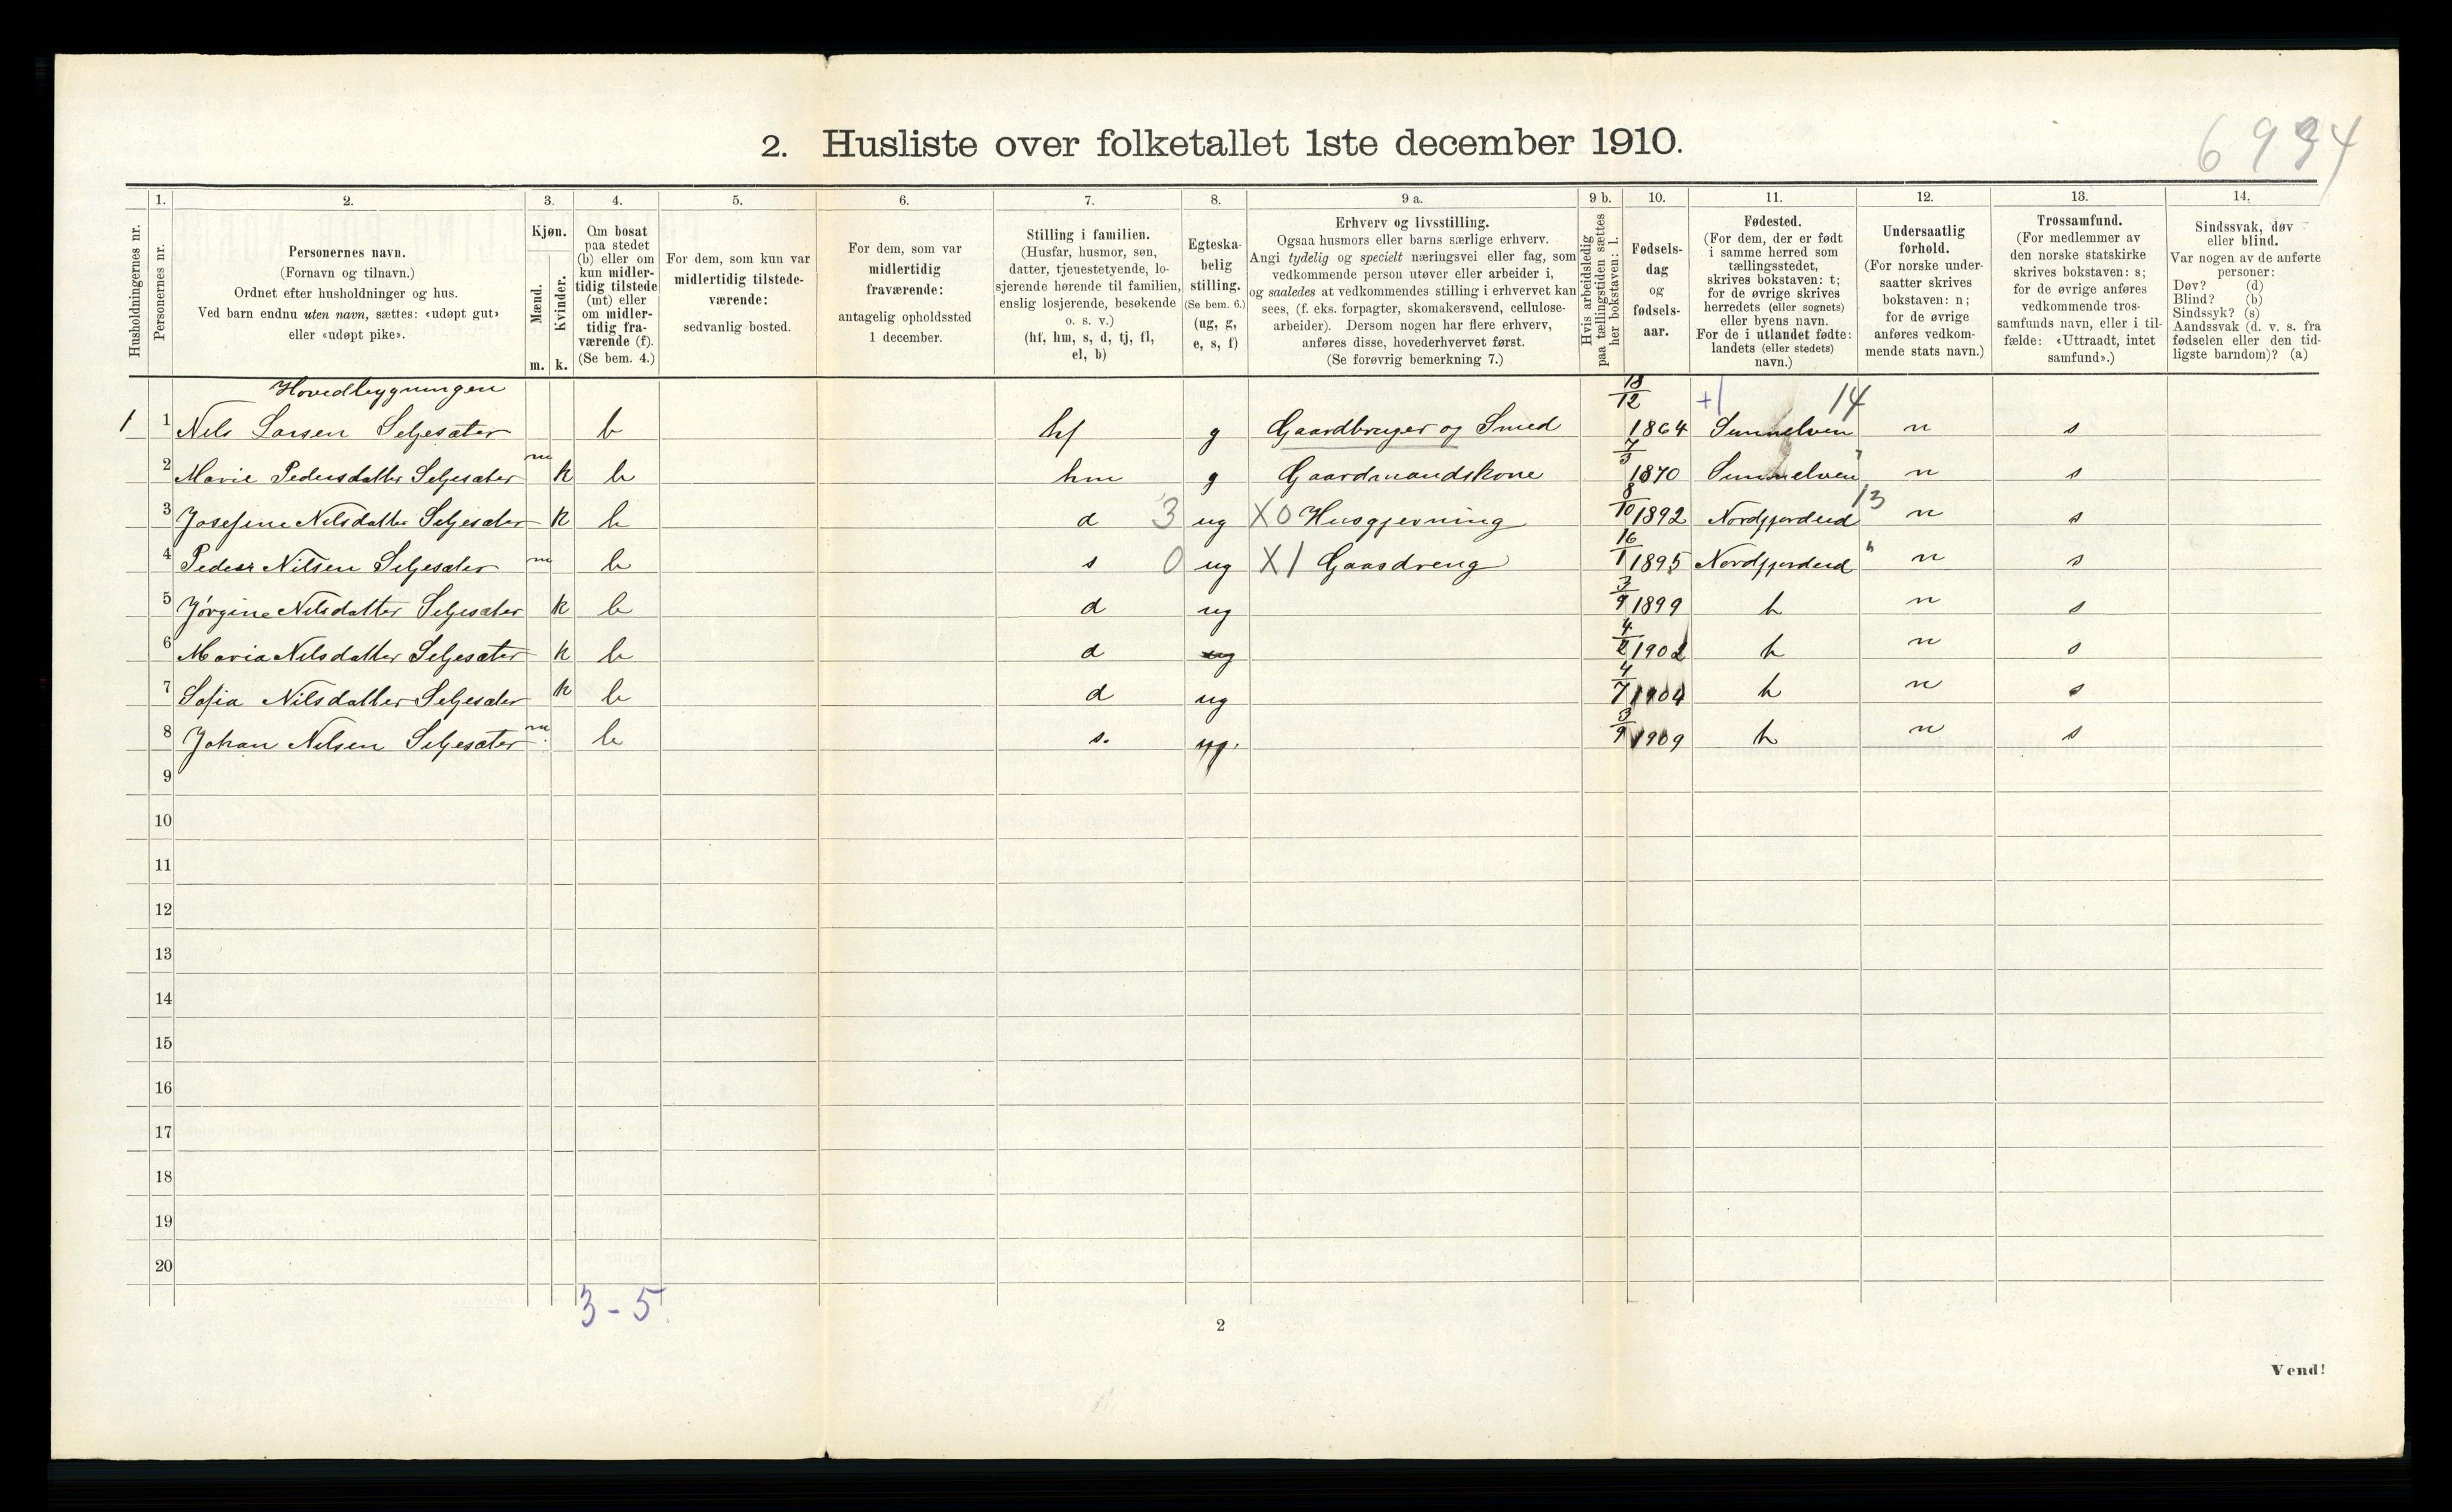 6934
2. Husliste over folketallet 1ste december 1910.
Husholdningernes nr.
1.
Personernes nr.
2.
Personernes navn.
(Fornavn og tilnavn.)
Ordnet efter husholdninger og hus.
Ved barn endnu uten navn, sættes: «udøpt gut»
eller «udøpt pike».
3.
Kjøn.
Mænd.
Kvinder.
m. k.
4.
Om bosat
paa stedet
(b) eller om
kun midler-
tidig tilstede
(mt) eller
om midler-
tidig fra-
værende (f).
(Se bem. 4.)
5.
For dem, som kun var
midlertidig tilstede-
værende:
sedvanlig bosted.
6.
For dem, som var
midlertidig
fraværende:
antagelig opholdssted
1 december.
7.
Stilling i familien.
(Husfar, husmor, søn,
datter, tjenestetyende, lo-
sjerende hørende til familien,
enslig losjerende, besøkende
o. s. v.)
(hf, hm, s, d, tj, fl,
el, b)
8.
Egteska-
belig
stilling.
(Se bem. 6.)
(ug, g,
e, s, f)
9 a.
Erhverv og livsstilling.
Ogsaa husmors eller barns særlige erhverv.
Angi tydelig og specielt næringsvei eller fag, som
vedkommende person utøver eller arbeider i,
og saaledes at vedkommendes stilling i erhvervet kan
sees, (f. eks. forpagter, skomakersvend, cellulose-
arbeider). Dersom nogen har flere erhverv,
anføres disse, hovederhvervet først.
(Se forøvrig bemerkning 7.)
9 b.
Hvis arbeidsledig
paa tællingstiden sættes
her bokstaven: l.
10.
Fødsels-
dag
og
fødsels-
aar.
11.
Fødested.
(For dem, der er født
i samme herred som
tællingsstedet,
skrives bokstaven: t;
for de øvrige skrives
herredets (eller sognets)
eller byens navn.
For de i utlandet fødte:
landets (eller stedets)
navn.)
12.
Undersaatlig
forhold.
(For norske under-
saatter skrives
bokstaven: n;
for de øvrige
anføres vedkom-
mende stats navn.)
13.
Trossamfund.
(For medlemmer av
den norske statskirke
skrives bokstaven: s;
for de øvrige anføres
vedkommende tros-
samfunds navn, eller i til-
fælde: «Uttraadt, intet
samfund».)
14.
Sindssvak, døv
eller blind.
Var nogen av de anførte
personer:
Døv? (d)
Blind? (b)
Sindssyk? (s)
Aandssvak (d. v. s. fra
fødselen eller den tid-
ligste barndom)? (a)
Hovedbygningen
1 1 Nils Larsen Seljesæter b hf g Gaardbruger og Smed 18/12 1864 +1 Sunnelven 14 n s
2 Marie Pedersdatter Seljesæter m k b hm g Gaardmandskone 7/3 1870 Sunnelven " n s
3 Josefine Nilsdatter Seljesæter k b d 3 ug X0 Husgjerning 8/10 1892 Nordfjordeid 13 n s
4 Peder Nilsen Seljesæter m b s 0 ug X1 Gaardreng 16/1 1895 Nordfjordeid " n s
5 Jørgine Nilsdatter Seljesæter k b d ug 3/9 1899 h n s
6 Maria Nilsdatter Seljesæter k b d ug 4/2 1902 h n s
7 Sofia Nilsdatter Seljesæter k b d ug 4/7 1904 h n s
8 Johan Nilsen Seljesæter m. b s. ug. 3/9 1909 h n s
9
10
11
12
13
14
15
16
17
18
19
20
3 - 5
2
Vend!